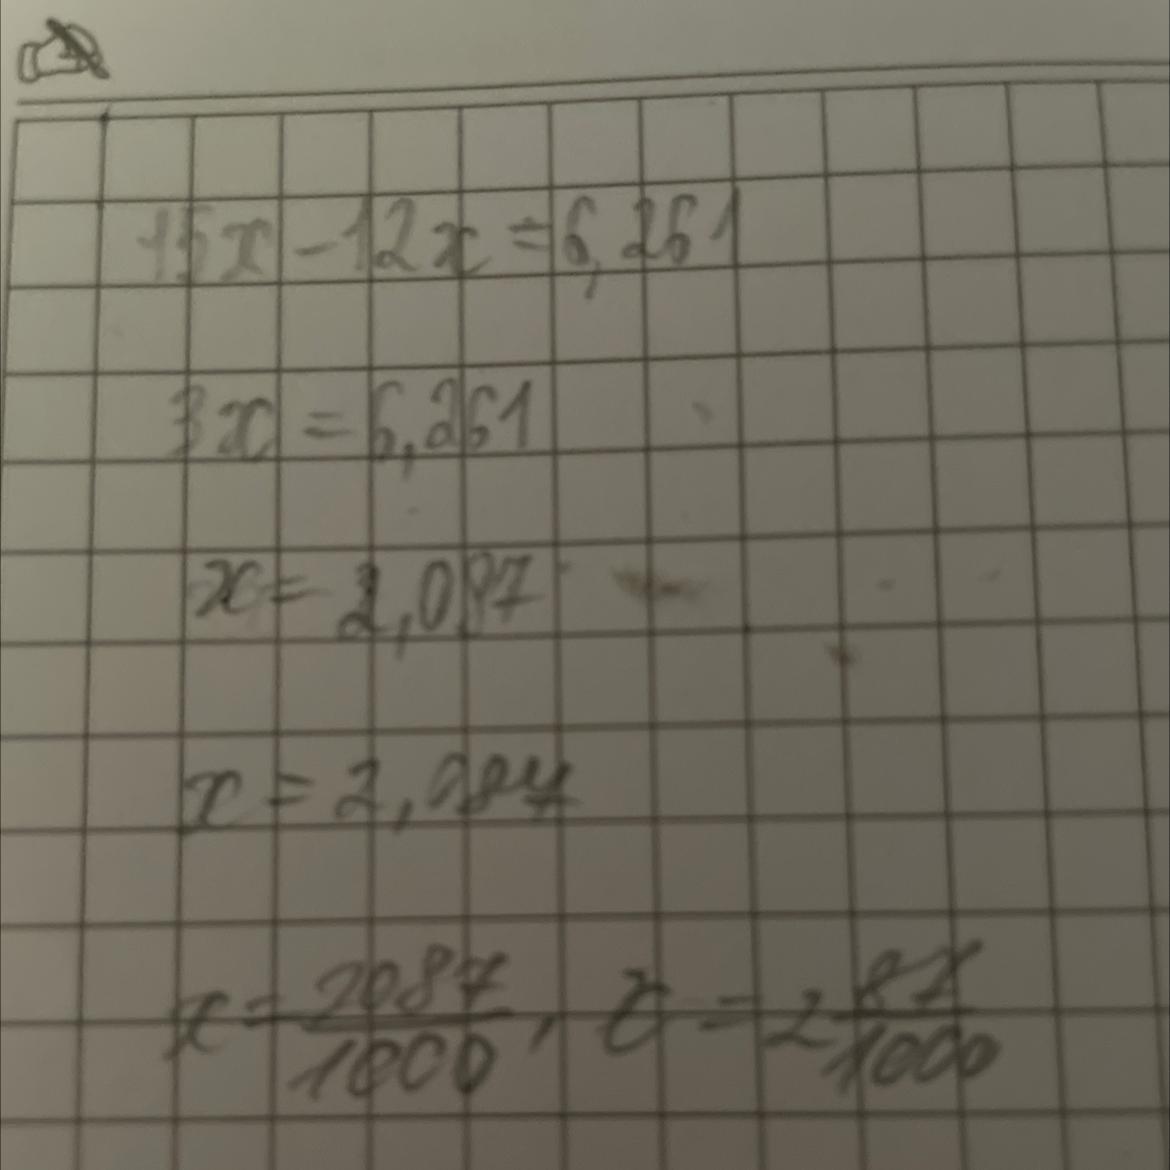 15x - 12x = 6,261
3x = 6,261
x = 2,087
x = 2,087
x = 2087/1000, x = 2 87/1000